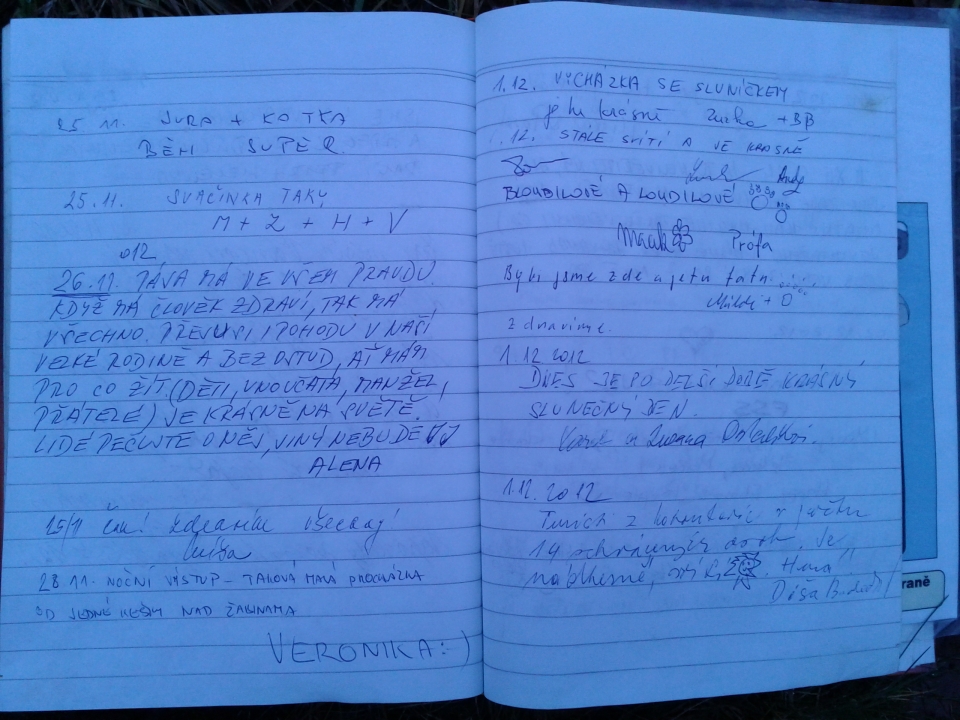 25 11. JURA + KOTKA
BĚHI SUPĚR
25.11. SVAČINKA TAKY
M + Z + H + V
26.11. 2012 PÁVA MÁ VE VŠEM PRAVDU.
KDYŽ MÁ ČLOVĚK ZDRAVÍ, TAK MÁ
VŠECHNO. I POHODU V NAŠÍ
VELKÉ RODINĚ A BEZ OSTUD, AŤ MÁM
PRO CO ŽÍT. (DĚTI, VNOUČATA, MANŽEL,
PŘÁTELÉ) JE KRÁSNĚ NA SVĚTĚ.
LIDÉ PEČUJTE O NĚJ, JINÝ NEBUDE
ALENA
25/11 zdravím všecky
28. 11. NOČNÍ VÝSTUP - TAKOVÁ MALÁ PROCHÁZKA
OD JEDNÉ KEŠKY NAD ŽALUNAMA
VERONIKA :)
1.12. VYCHÁZKA SE SLUNÍČKEM
je tu krásně Zuzka + BB
1.12. STÁLE SVÍTÍ A JE KRÁSNĚ
BLOUDILOVÉ A LOUDILOVÉ
Prófa
Byli jsme zde a je tu fajn.
+
zdravíme.
1.12 2012
DNES JE PO DELŠÍ DOBĚ KRÁSNÝ
SLUNEČNÝ DEN.
Karel a Zuzana
1.12. 2012
Turisti z v počtu
14 osob. Je
nádherně,
Dáša
raně